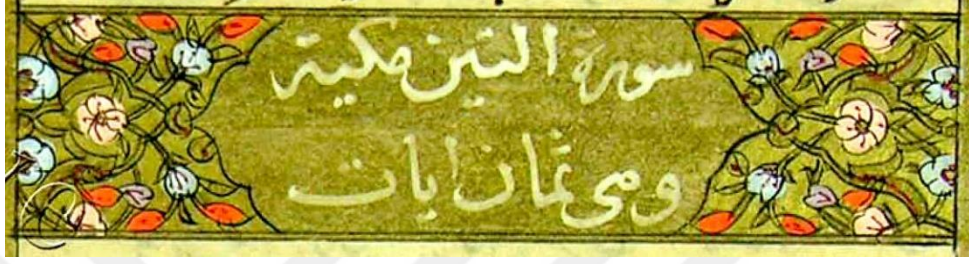 سورة التين مكية
وهي ثمان ايات